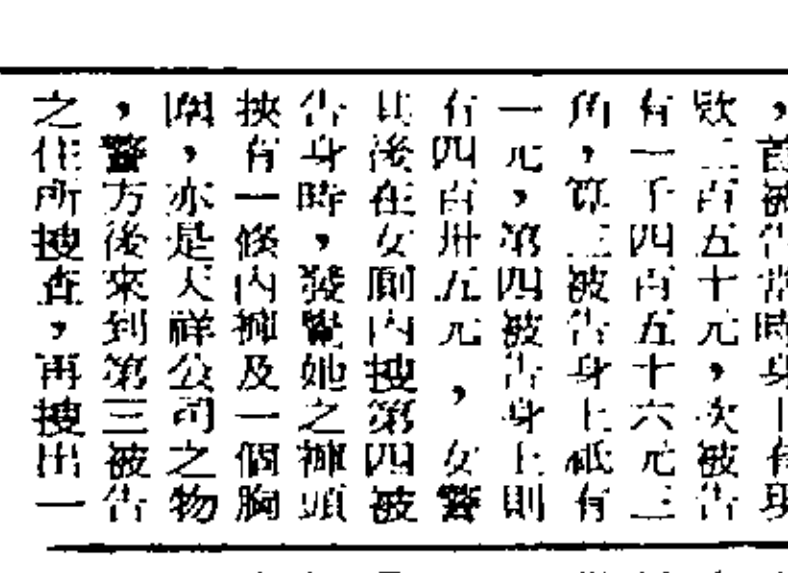 ，首被告當時身上有現
欵二百五十元，次被告
有一千四百五十六元三
角，第三被告身上祇有
一元，第四被告身上則
有四百卅五元，女警
其後在女厠內搜第四被
告身時，發覺她之褲頭
挾有一條內褲及一個胸
圍，亦是天祥公司之物
，警方後來到第三被告
之住所搜查，再搜出一